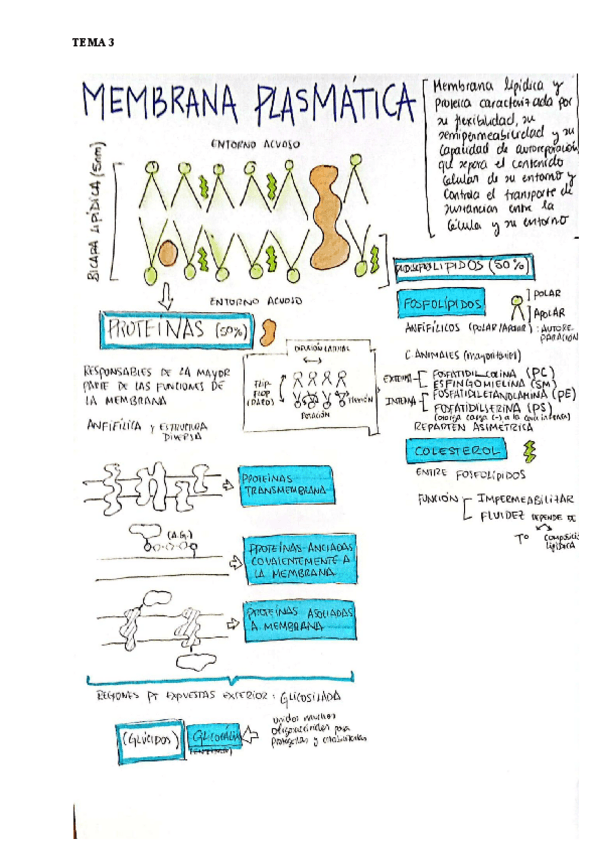 TEMA 3
MEMBRANA PLASMÁTICA
Membrana lipídica y
proteica caracterizada por
su flexibilidad, su
semipermeabilidad y su
capacidad de autoreparación
que separa el contenido
celular de su entorno y
controla el transporte de
sustancias entre la
célula y su entorno
ENTORNO ACUOSO
BICAPA LIPÍDICA (5nm)
ENTORNO ACUOSO
PROTEÍNAS (50%)
RESPONSABLES DE LA MAYOR
PARTE DE LAS FUNCIONES DE
LA MEMBRANA
ANFIFÍLICA y ESTRUCTURA
DIVERSA
DIFUSIÓN LATERAL
FLIP-
FLOP
(RARO)
ROTACIÓN
FLEXIÓN
LIPIDOS (50%)
FOSFOLÍPIDOS
POLAR
APOLAR
ANFIFÍLICOS (POLAR/APOLAR): AUTORE-
PARACIÓN
C. ANIMALES (mayoritarios)
EXTERNA
FOSFATIDIL-COLINA (PC)
ESFINGOMIELINA (SM)
INTERNA
FOSFATIDILETANOLAMINA (PE)
FOSFATIDILSERINA (PS)
(otorga carga (-) a la cara interna)
REPARTEN ASIMÉTRICA
COLESTEROL
ENTRE FOSFOLÍPIDOS
FUNCIÓN
IMPERMEABILIZAR
FLUIDEZ DEPENDE DE
Tº
lipídica
PROTEÍNAS
TRANSMEMBRANA
(A.G.)
PROTEÍNAS ANCLADAS
COVALENTEMENTE A
LA MEMBRANA
PROTEÍNAS ASOCIADAS
A MEMBRANA
REGIONES PT EXPUESTAS EXTERIOR: GLICOSILADA
(GLÚCIDOS)
unidos muchos
oligosacáridos para
protegerlas y estabilizarlas